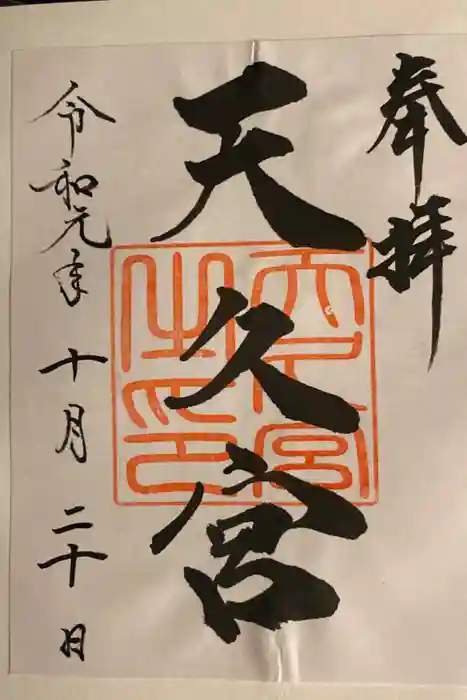 奉拝
天久宮
天久宮之印
令和元年 十月 二十日